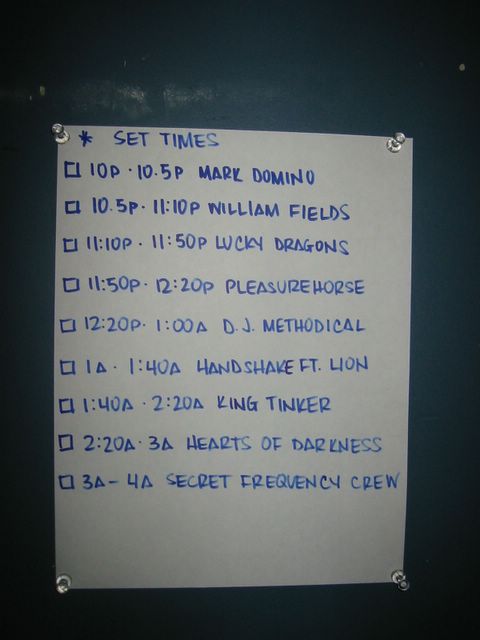 * SET TIMES
10P · 10.5P MARK DOMINO
10.5P · 11:10P WILLIAM FIELDS
11:10P · 11:50P LUCKY DRAGONS
11:50P · 12:20P PLEASUREHORSE
12:20P · 1:00A D.J. METHODICAL
1A · 1:40A HANDSHAKE FT. LION
1:40A · 2:20A KING TINKER
2:20A · 3A HEARTS OF DARKNESS
3A - 4A SECRET FREQUENCY CREW